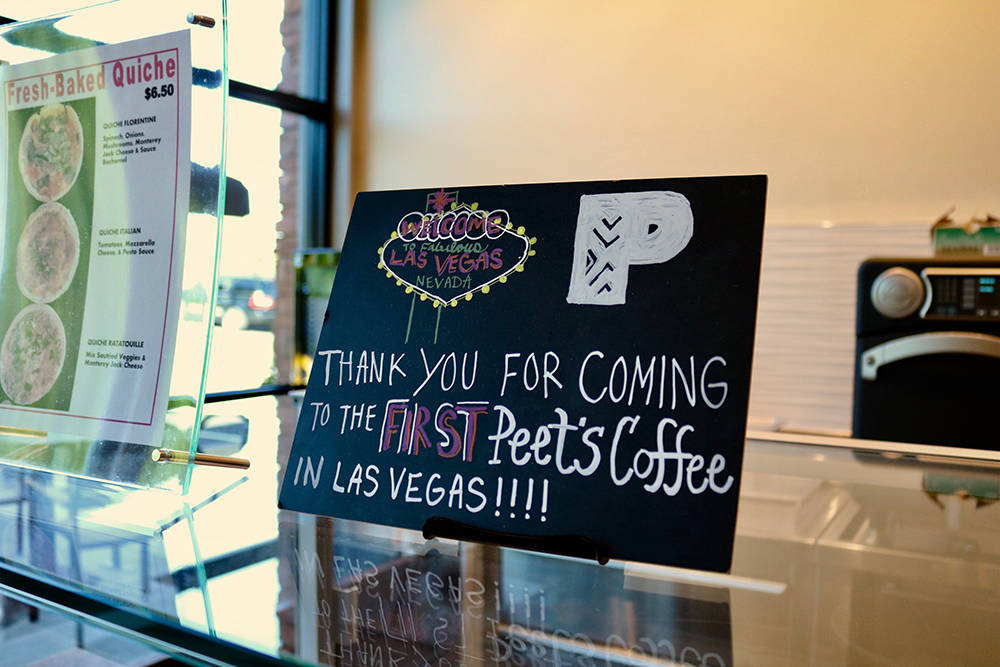 Fresh-Baked Quiche
$6.50
QUICHE FLORENTINE
Spinach, Onions,
Mushrooms, Monterey
Jack Cheese & Sauce
Bechamel
QUICHE ITALIAN
Tomatoes, Mozzarella
Cheese, & Pesto Sauce
QUICHE RATATOUILLE
Mix Sautied Veggies &
Monterey Jack Cheese
WELCOME
TO Fabulous
LAS VEGAS
NEVADA
P
THANK YOU FOR COMING
TO THE FIRST Peet's Coffee
IN LAS VEGAS!!!!